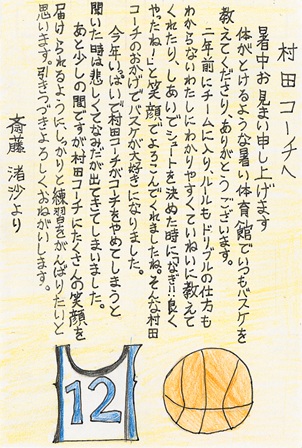 村田コーチへ
暑中お見まい申し上げます
体がとけるような暑い体育館でいつもバスケを
教えてくださり、ありがとうございます。
二年前にチームに入り、ルールもドリブルの仕方も
わからないわたしにわかりやすくていねいに教えて
くれたり、しあいでシュートを決めた時に「なぎ!!良く
やったね!」と笑顔でよろこんでくれましたね。そんな村田
コーチのおかげでバスケが大好きになりました。
今年いっぱいで村田コーチがコーチをやめてしまうと
聞いた時は悲しくてなみだが出てきてしまいました。
あと少しの間ですが村田コーチにたくさんの笑顔を
届けられるようにしっかりと練習をがんばりたいと
思います。引きつづきよろしくおねがいします。
斎藤 渚沙より
12